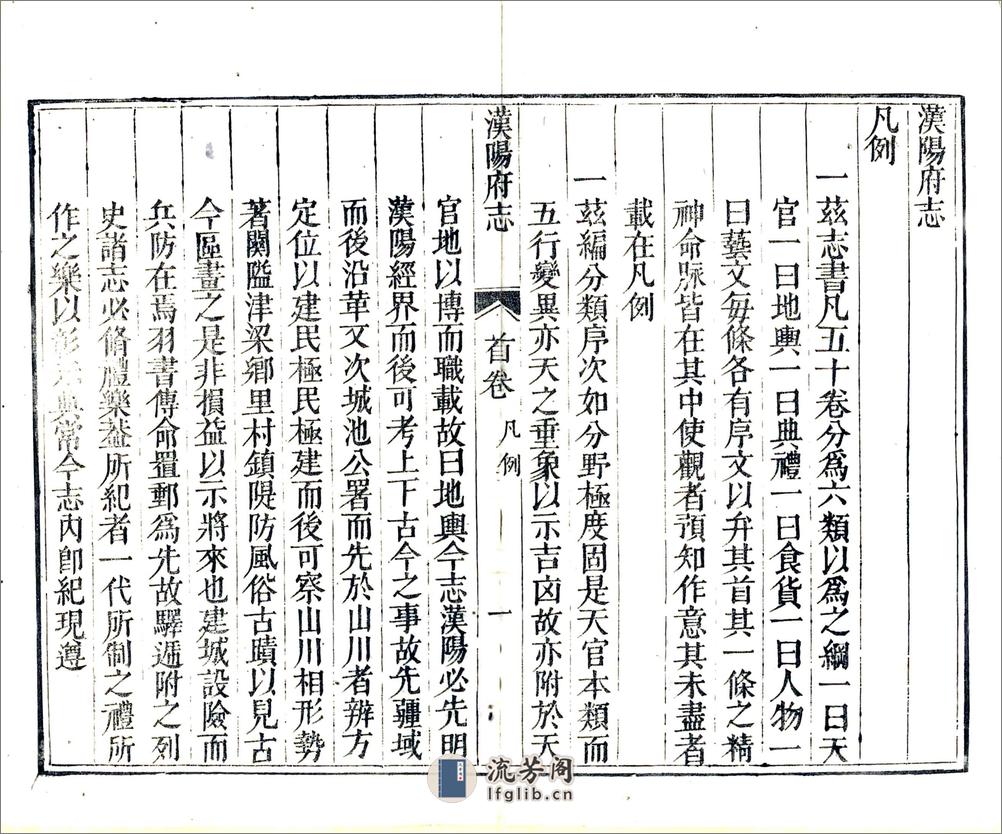 漢陽府志
凡例
一茲志書凡五十卷分爲六類以爲之綱一曰天
官一曰地輿一曰典禮一曰食貨一曰人物一
曰藝文每條各有序文以弁其首其一條之精
神命脈皆在其中使觀者預知作意其未盡者
載在凡例
一茲編分類序次如分野極度固是天官本類而
五行變異亦天之垂象以示吉凶故亦附於天
漢陽府志 首卷 凡例 一
官地以博而職載故曰地輿今志漢陽必先明
漢陽經界而後可考上下古今之事故先疆域
而後沿革又次城池公署而先於山川者辨方
定位以建民極民極建而後可察山川相形勢
著關隘津梁鄉里村鎮隄防風俗古蹟以見古
今區畫之是非損益以示將來也建城設險而
兵防在焉羽書傳命置郵爲先故驛遞附之列
史諸志必脩禮樂蓋所紀者一代所制之禮所
作之樂以彰示典常今志內卽紀現遵
流芳阁
lfglib.cn